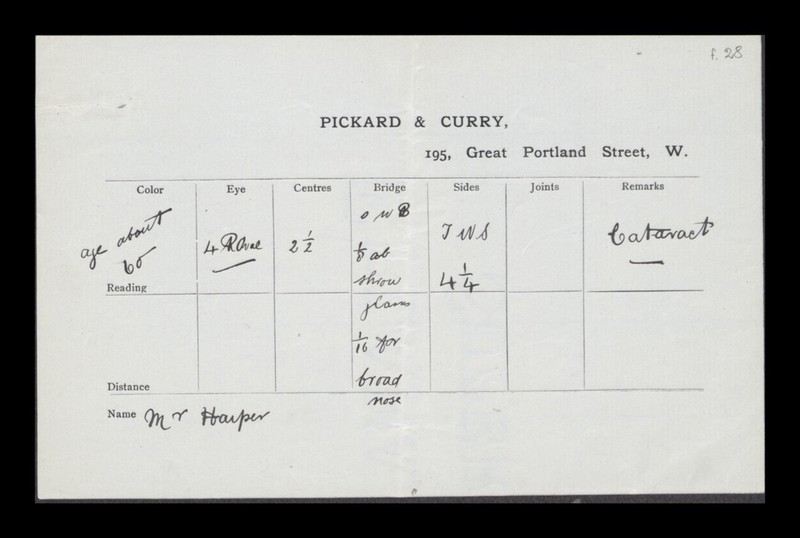 f. 28
PICKARD & CURRY,
195, Great Portland Street, W.
Color Eye Centres Bridge Sides Joints Remarks
age about
4 Oval
2 1/2
1/8 ab
throw
glass
1/16 for
broad
nose
4 1/4
Cataract
Reading
Distance
Name Mr Harper